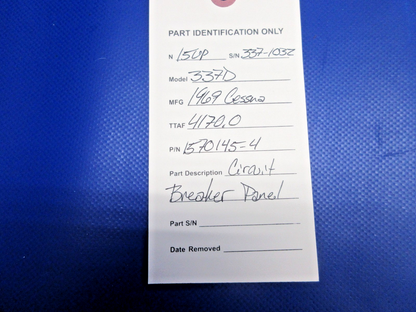 PART IDENTIFICATION ONLY
N 15UP S/N 337-1032
Model 337D
MFG 1969 Cessna
TTAF 4170.0
P/N 1570145-4
Part Description Circuit
Breaker Panel
Part S/N
Date Removed